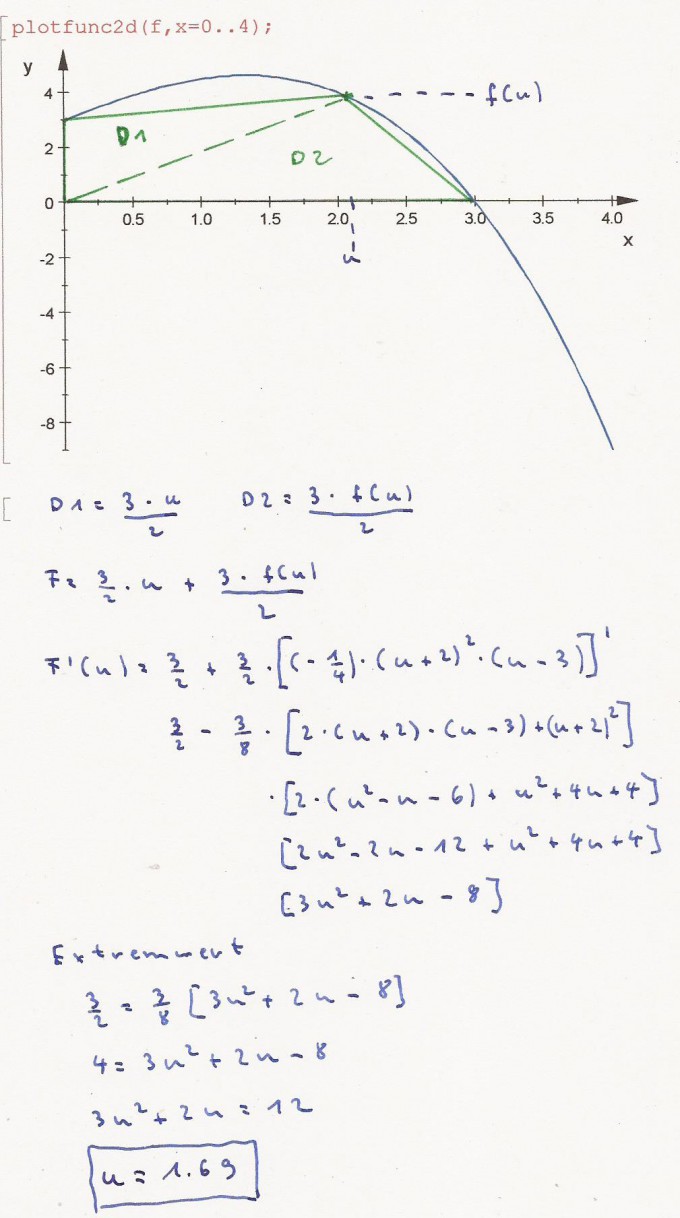 plotfunc2d(f,x=0..4);
y
4 f(u)
D1
2 D2
0 0.5 1.0 1.5 2.0 2.5 3.0 3.5 4.0
x
-2 u
-4
-6
-8
D1 = 3 · u / 2 D2 = 3 · f(u) / 2
F = 3/2 · u + 3 · f(u) / 2
F'(u) = 3/2 + 3/2 · [(-1/4) · (u+2)² · (u-3)]'
3/2 - 3/8 · [2 · (u+2) · (u-3) + (u+2)²]
· [2 · (u² - u - 6) + u² + 4u + 4]
[2u² - 2u - 12 + u² + 4u + 4]
[3u² + 2u - 8]
Extremwert
3/2 = 3/8 [3u² + 2u - 8]
4 = 3u² + 2u - 8
3u² + 2u = 12
u = 1.69